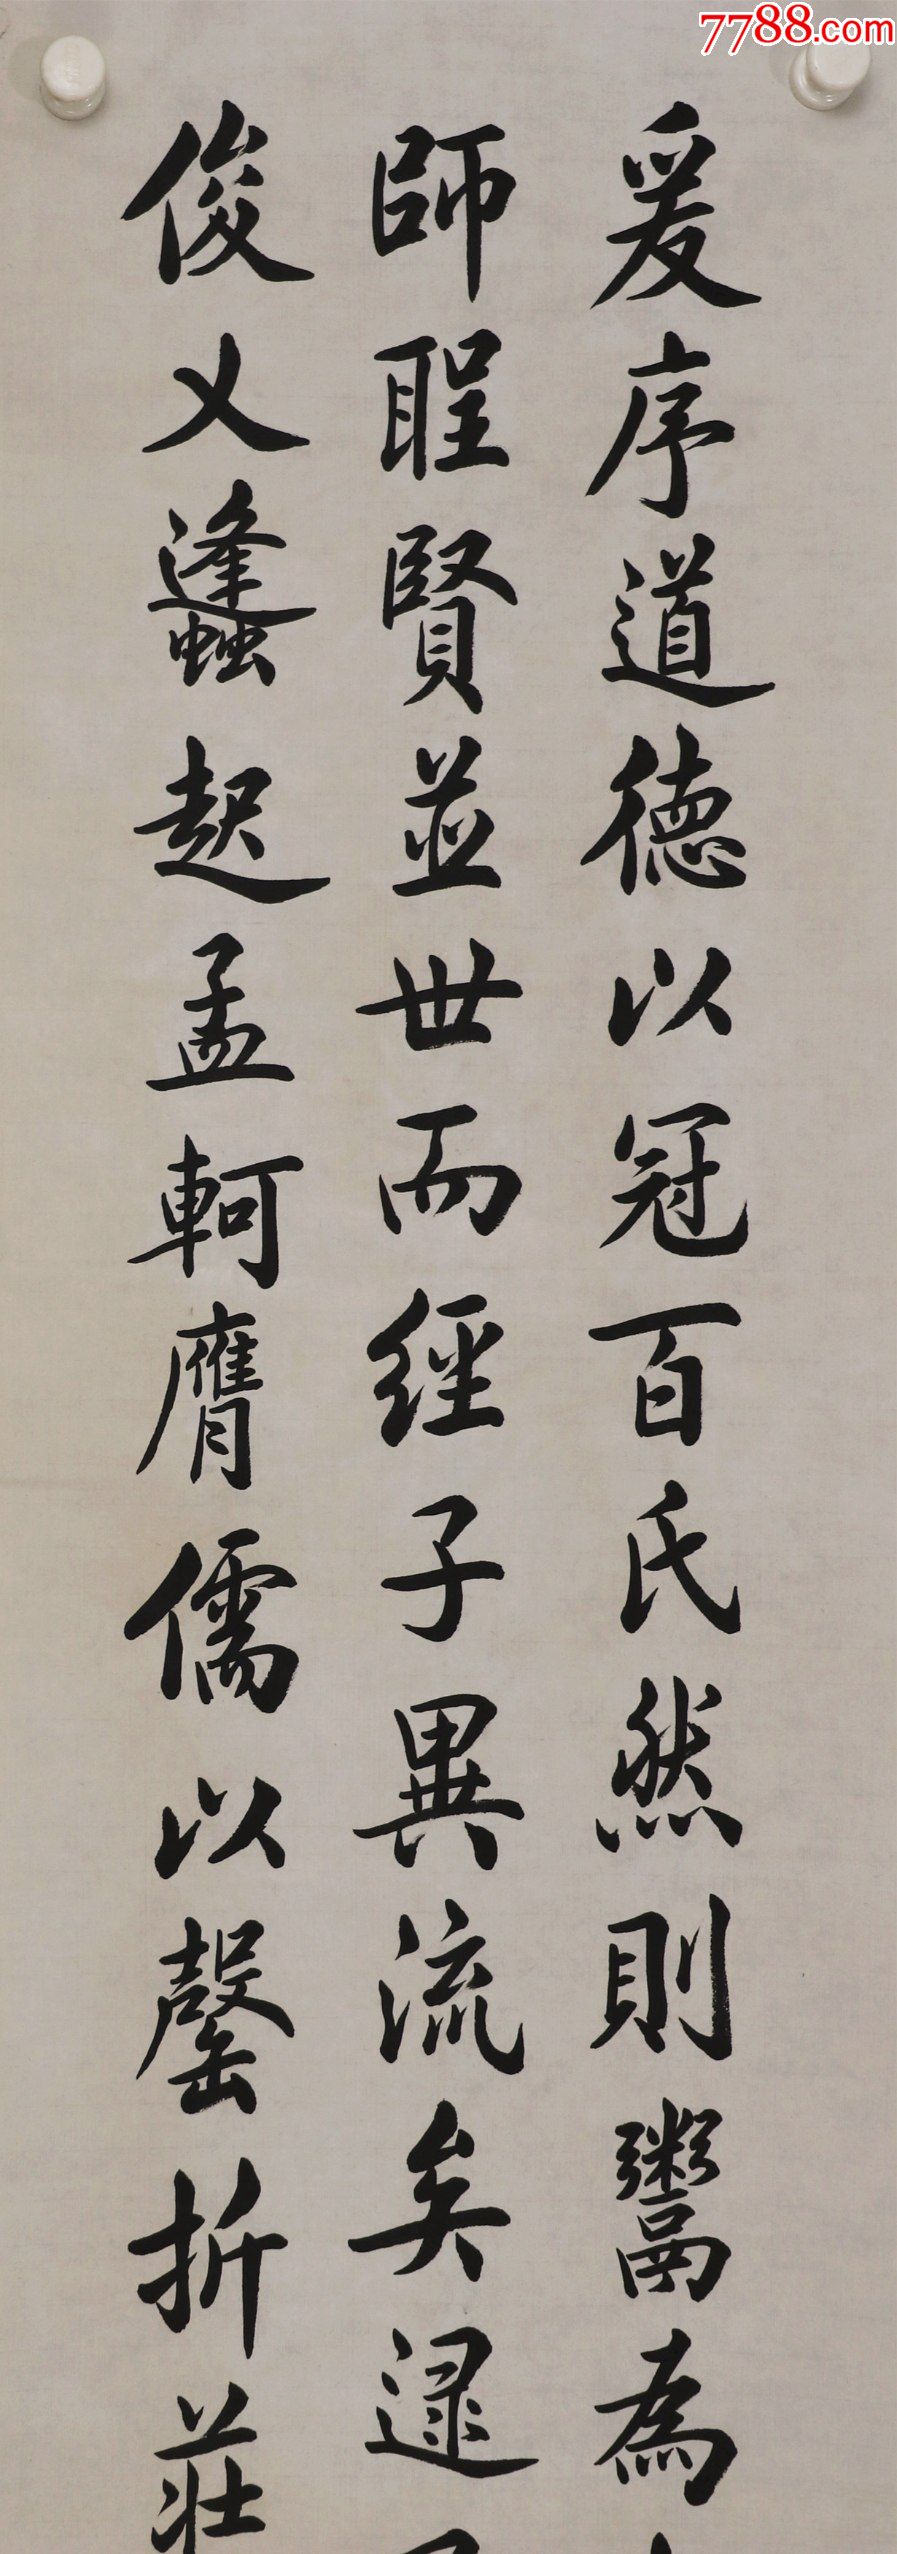 7788.com
爰序道德以冠百氏然則鬻為
師聖賢並世而經子異流矣逮
俊乂蠭起孟軻膺儒以罄折莊